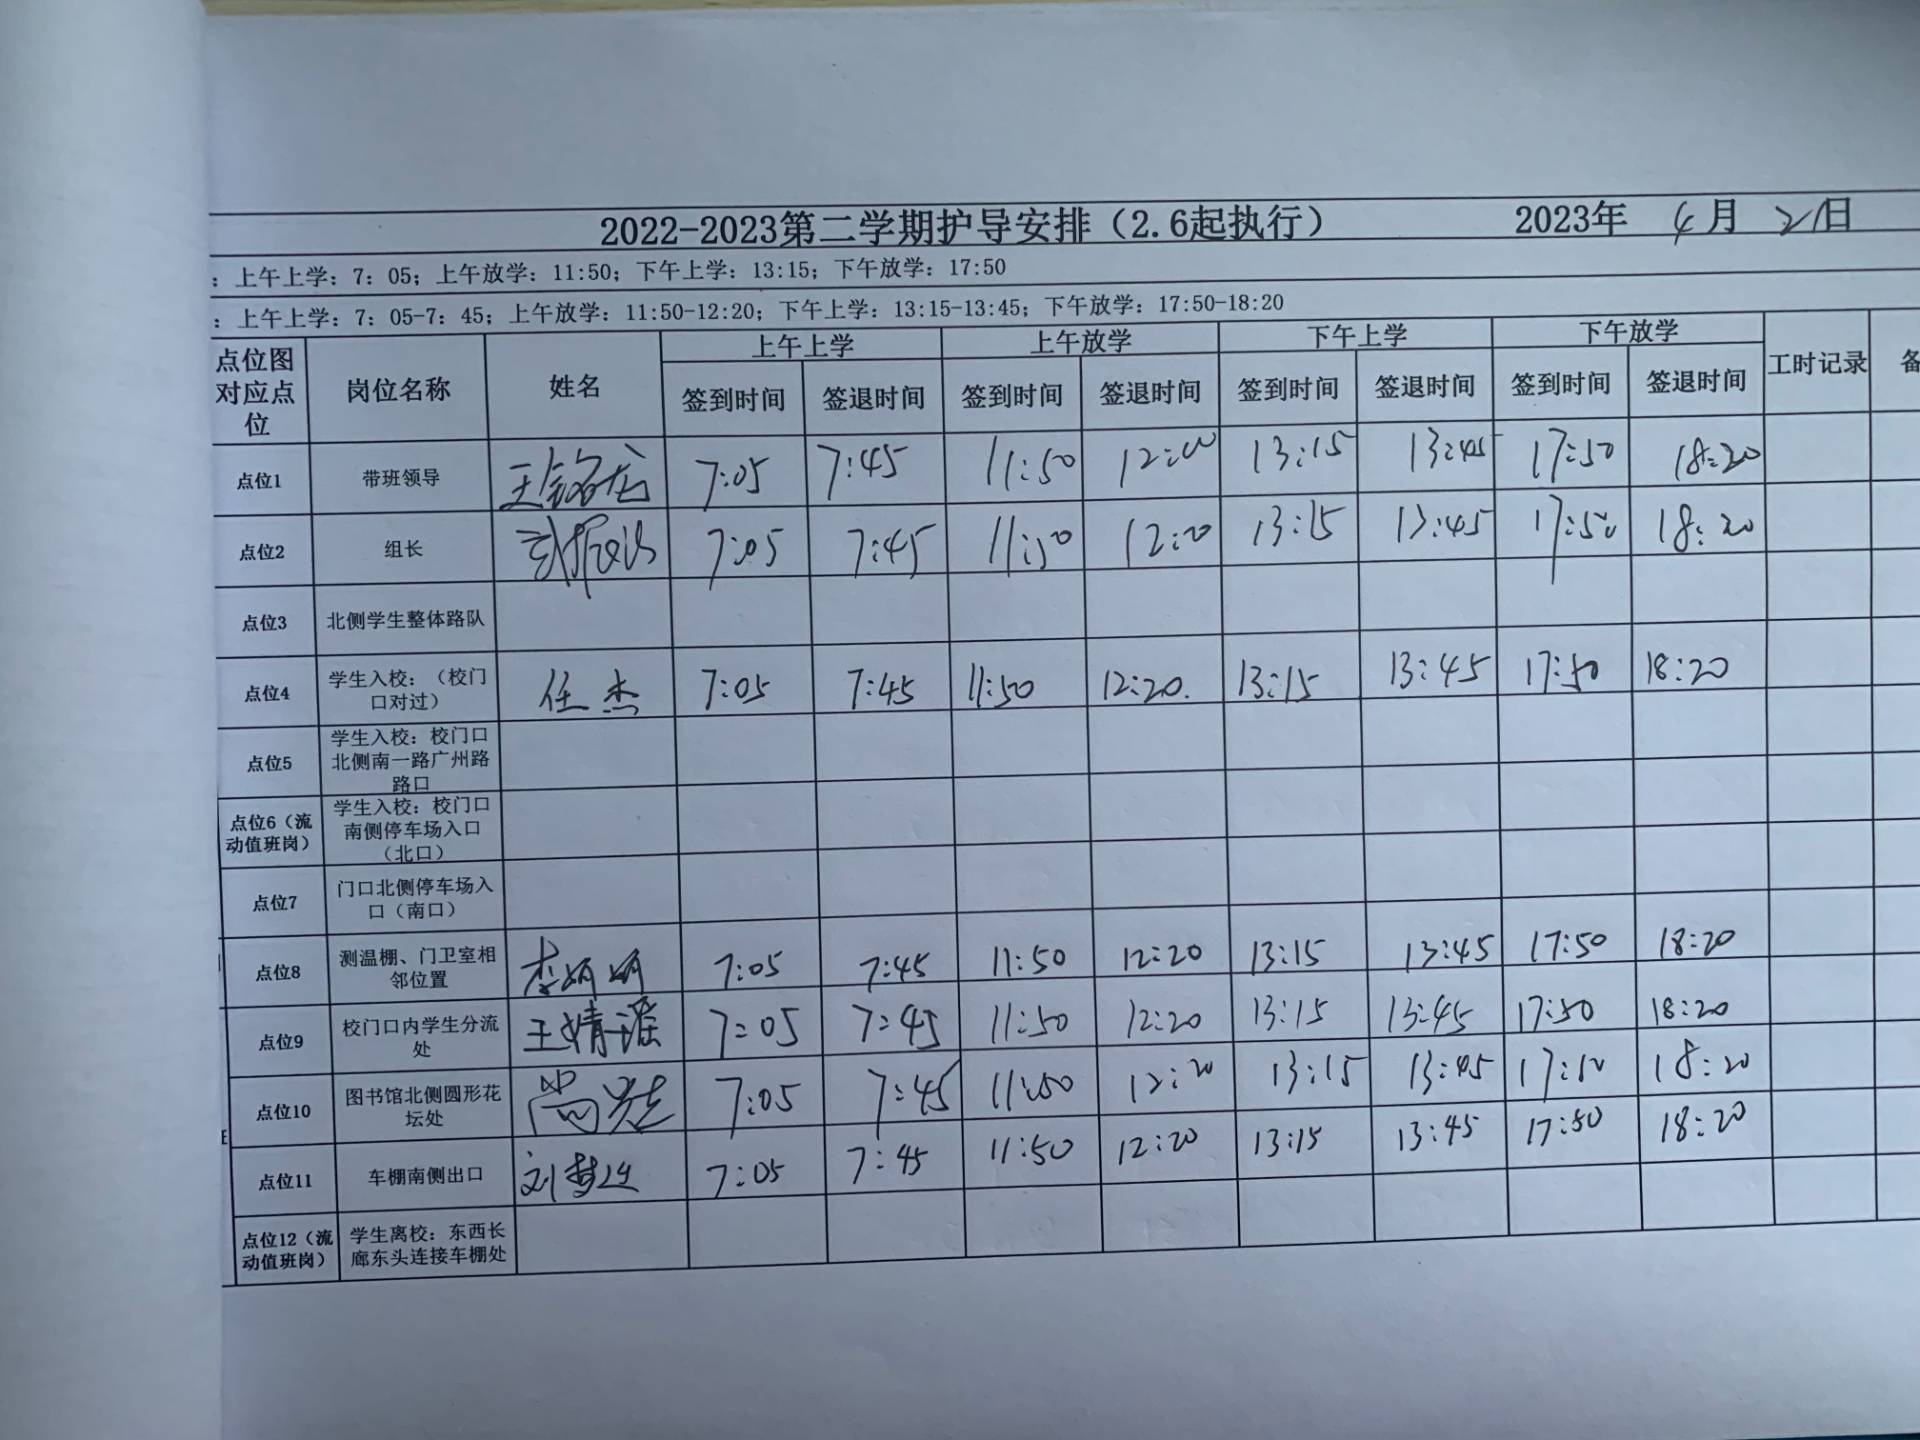 2022-2023第二学期护导安排（2.6起执行） 2023年 4月 21日
：上午上学：7：05；上午放学：11:50；下午上学：13:15；下午放学：17:50
：上午上学：7：05-7：45；上午放学：11:50-12:20；下午上学：13:15-13:45；下午放学：17:50-18:20
点位图对应点位 岗位名称 姓名 上午上学 上午放学 下午上学 下午放学 工时记录 备
签到时间 签退时间 签到时间 签退时间 签到时间 签退时间 签到时间 签退时间
点位1 带班领导 王铭龙 7:05 7:45 11:50 13:15 13:45 17:50 18:20
点位2 组长 7:05 7:45 11:50 12:20 13:15 13:45 17:50 18:20
点位3 北侧学生整体路队
点位4 学生入校：（校门口对过） 任杰 7:05 7:45 11:50 12:20. 13:15 13:45 17:50 18:20
点位5 学生入校：校门口北侧南一路广州路路口
点位6（流动值班岗） 学生入校：校门口南侧停车场入口（北口）
点位7 门口北侧停车场入口（南口）
点位8 测温棚、门卫室相邻位置 李 7:05 7:45 11:50 12:20 13:15 13:45 17:50 18:20
点位9 校门口内学生分流处 王婧瑶 7:05 7:45 11:50 12:20 13:15 13:45 17:50 18:20
点位10 图书馆北侧圆形花坛处 尚 7:05 7:45 11:50 12:20 13:15 13:45 17:50 18:20
点位11 车棚南侧出口 刘梦 7:05 7:45 11:50 12:20 13:15 13:45 17:50 18:20
点位12（流动值班岗） 学生离校：东西长廊东头连接车棚处